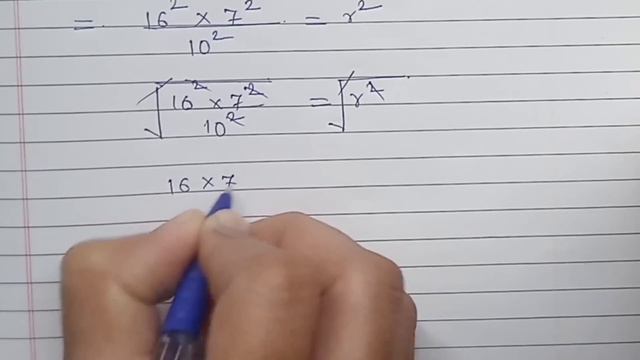 = 16² × 7² / 10² = r²
√(16² × 7² / 10²) = √r²
16 × 7